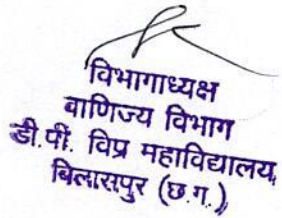 विभागाध्यक्ष
वाणिज्य विभाग
डी.पी. विप्र महाविद्यालय,
बिलासपुर (छ.ग.)